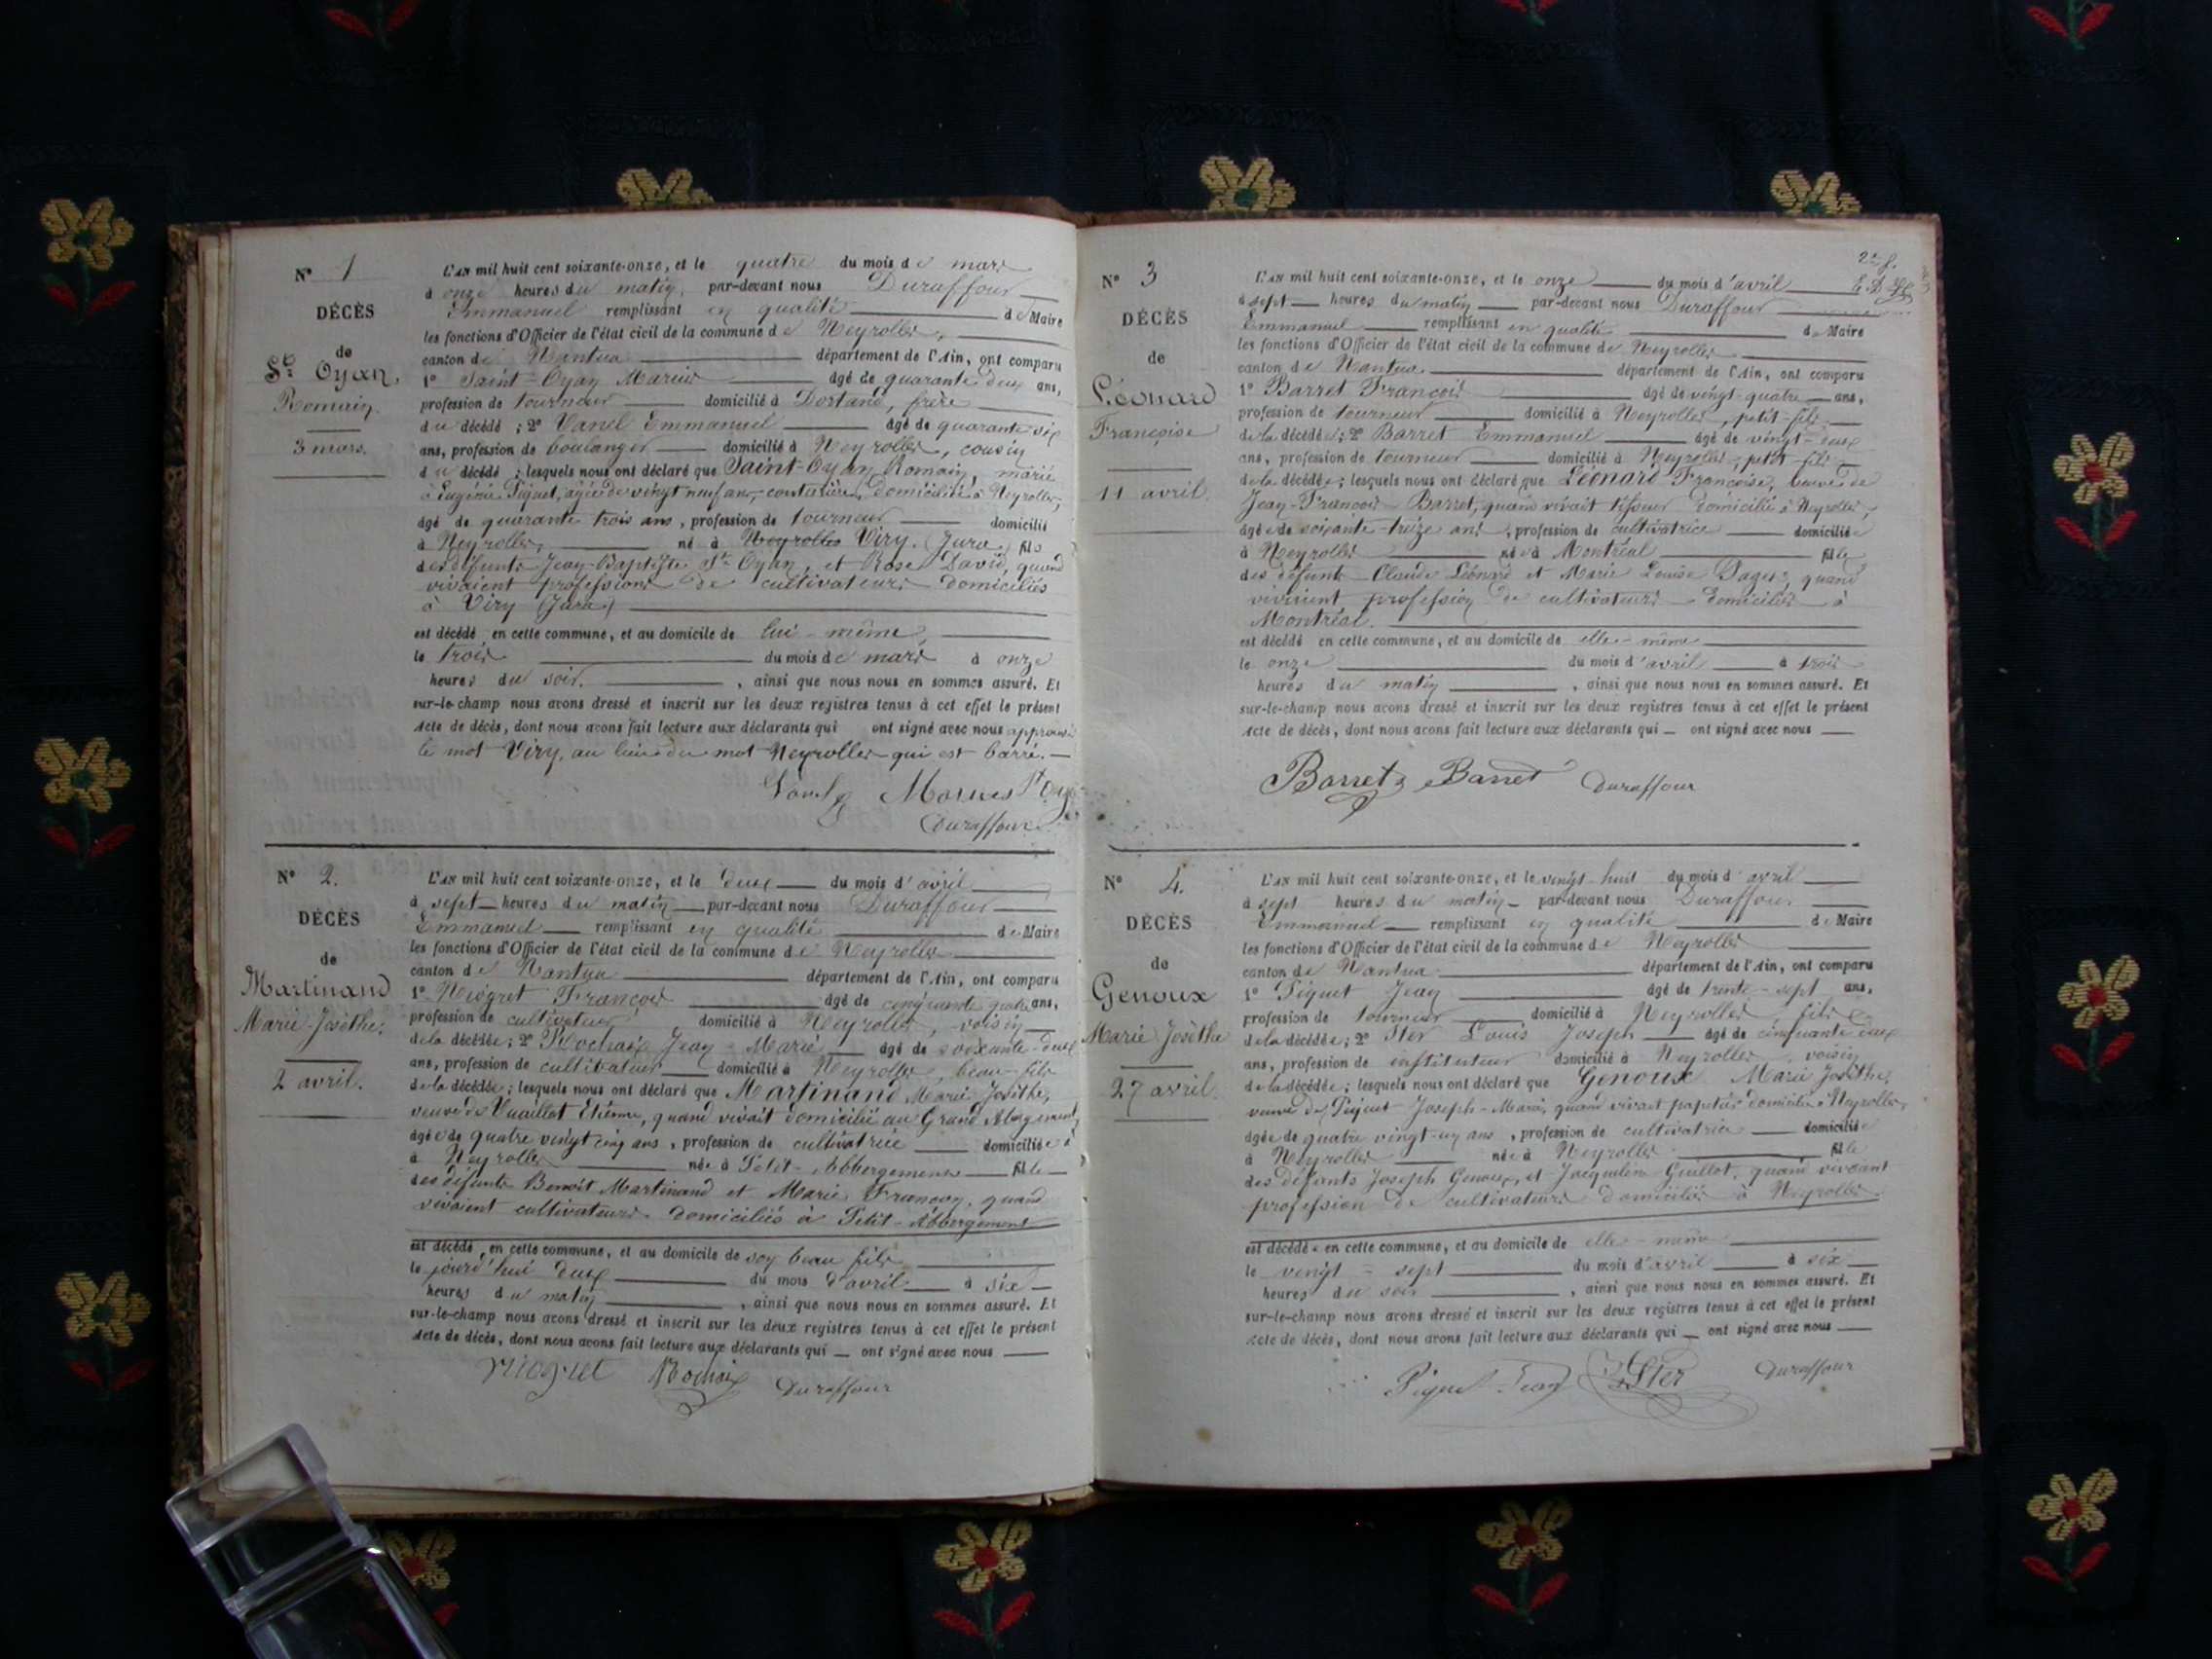 N° 1
DÉCÈS
de
St Oyan,
Romain.
3 mars.
L'AN mil huit cent soixante-onze, et le quatre du mois de mars
à onze heures du matin, par-devant nous Duraffour
Emmanuel remplissant en qualité de Maire
les fonctions d'Officier de l'état civil de la commune de Neyrolles,
canton de Nantua département de l'Ain, ont comparu
1° Saint-Oyan Marius âgé de quarante deux ans,
profession de tourneur domicilié à Dortand, frère
du décédé ; 2° Vanel Emmanuel âgé de quarante six
ans, profession de boulanger domicilié à Neyrolles, cousin
du décédé ; lesquels nous ont déclaré que Saint-Oyan Romain, marié
à Eugénie Piquet, agée de vingt neuf ans, couturière, domiciliée à Neyrolles,
âgé de quarante trois ans, profession de tourneur domicilié
à Neyrolles, né à Neyrolles Viry. (Jura) fils
des défunts Jean-Baptiste St Oyan, et Rose David, quand
vivaient professions de cultivateurs domiciliés
à Viry (Jura)
est décédé en cette commune, et au domicile de lui-même,
le trois du mois de mars à onze
heures du soir. , ainsi que nous nous en sommes assuré. Et
sur-le-champ nous avons dressé et inscrit sur les deux registres tenus à cet effet le présent
Acte de décès, dont nous avons fait lecture aux déclarants qui ont signé avec nous approuvé
le mot Viry, au lieu du mot Neyrolles qui est barré.
Vanel Marius St Oyan
Duraffour
N° 2.
DÉCÈS
de
Martinand
Marie-Josèthe.
2 avril.
L'AN mil huit cent soixante-onze, et le deux du mois d'avril
à sept heures du matin par-devant nous Duraffour
Emmanuel remplissant en qualité de Maire
les fonctions d'Officier de l'état civil de la commune de Neyrolles
canton de Nantua département de l'Ain, ont comparu
1° Niogret François âgé de cinquante quatre ans,
profession de cultivateur domicilié à Neyrolles, voisin
de la décédée ; 2° Rochaix Jean-Marie âgé de soixante-deux
ans, profession de cultivateur domicilié à Neyrolles, beau-fils
de la décédée ; lesquels nous ont déclaré que Martinand Marie Josèthe,
veuve de Vuaillot Etienne, quand vivait domicilié au Grand Abergement,
âgée de quatre vingt cinq ans, profession de cultivatrice domiciliée
à Neyrolles née à Petit-Abbergement fille
des défunts Benoît Martinand et Marie Françon, quand
vivaient cultivateurs domiciliés à Petit-Abbergement
est décédé en cette commune, et au domicile de son beau fils
le jourd'hui deux du mois d'avril à six
heures du matin , ainsi que nous nous en sommes assuré. Et
sur-le-champ nous avons dressé et inscrit sur les deux registres tenus à cet effet le présent
Acte de décès, dont nous avons fait lecture aux déclarants qui ont signé avec nous
Niogret Rochaix Duraffour
2e f.
N° 3
DÉCÈS
de
Léonard
Françoise
11 avril.
L'AN mil huit cent soixante-onze, et le onze du mois d'avril
à sept heures du matin par-devant nous Duraffour
Emmanuel remplissant en qualité de Maire
les fonctions d'Officier de l'état civil de la commune de Neyrolles
canton de Nantua département de l'Ain, ont comparu
1° Barret François âgé de vingt-quatre ans,
profession de tourneur domicilié à Neyrolles, petit-fils
de la décédée ; 2° Barret Emmanuel âgé de vingt-deux
ans, profession de tourneur domicilié à Neyrolles, petit-fils
de la décédée ; lesquels nous ont déclaré que Léonard Françoise, veuve de
Jean-François Barret, quand vivait tisseur domicilié à Neyrolles,
âgée de soixante-treize ans, profession de cultivatrice domiciliée
à Neyrolles née à Montréal fille
des défunts Claude Léonard et Marie Louise Pagès, quand
vivaient profession de cultivateurs domiciliés à
Montréal.
est décédé en cette commune, et au domicile de elle-même
le onze du mois d'avril à trois
heures du matin , ainsi que nous nous en sommes assuré. Et
sur-le-champ nous avons dressé et inscrit sur les deux registres tenus à cet effet le présent
Acte de décès, dont nous avons fait lecture aux déclarants qui ont signé avec nous
Barret Barret Duraffour
N° 4.
DÉCÈS
de
Genoux
Marie Josèthe
27 avril.
L'AN mil huit cent soixante-onze, et le vingt-huit du mois d'avril
à sept heures du matin par-devant nous Duraffour
Emmanuel remplissant en qualité de Maire
les fonctions d'Officier de l'état civil de la commune de Neyrolles
canton de Nantua département de l'Ain, ont comparu
1° Piquet Jean âgé de trente-sept ans,
profession de tourneur domicilié à Neyrolles fils
de la décédée ; 2° Ster Louis Joseph âgé de cinquante deux
ans, profession de instituteur domicilié à Neyrolles, voisin
de la décédée ; lesquels nous ont déclaré que Genoux Marie Josèthe,
veuve de Piquet Joseph-Marie, quand vivait papetier domicilié à Neyrolles,
âgée de quatre vingt-un ans, profession de cultivatrice domiciliée
à Neyrolles née à Neyrolles fille
des défunts Joseph Genoux, et Jacqueline Guillot, quand vivaient
profession de cultivateurs domiciliés à Neyrolles.
est décédée en cette commune, et au domicile de elle-même
le vingt-sept du mois d'avril à six
heures du soir , ainsi que nous nous en sommes assuré. Et
sur-le-champ nous avons dressé et inscrit sur les deux registres tenus à cet effet le présent
Acte de décès, dont nous avons fait lecture aux déclarants qui ont signé avec nous
Piquet Jean Ster Duraffour